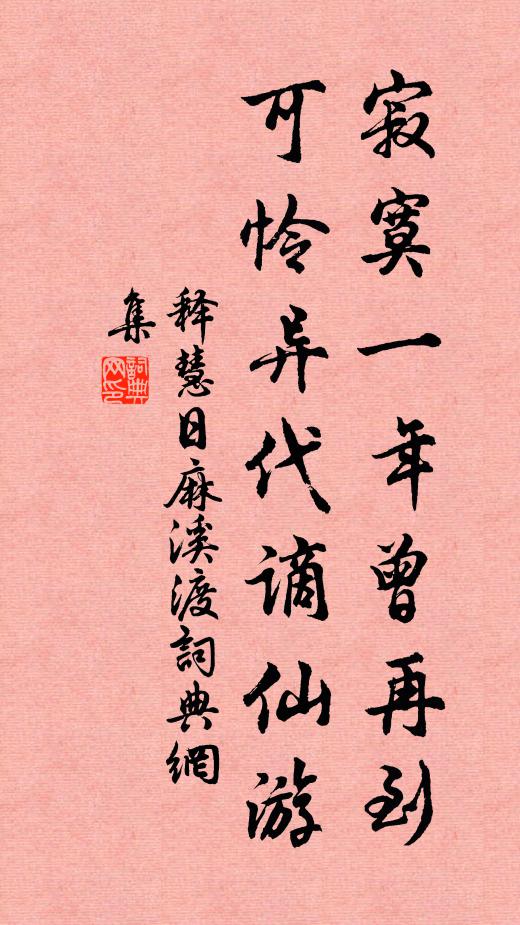 寂寞一年曾再到
可怜异代谪仙游
释慧日麻溪渡詞典網
集
詞典網印